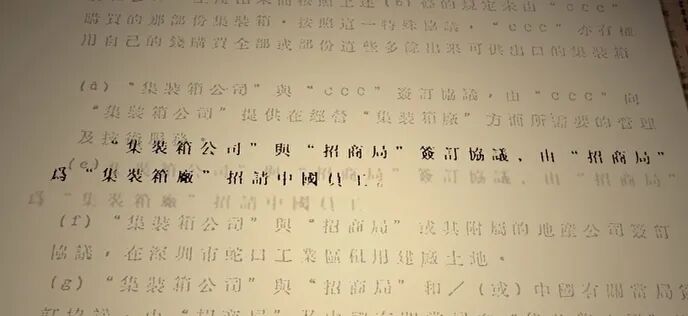 購買的那部份集裝箱。按照這一特殊協議，“ccc”亦有權
用自己的錢購買全部或部份這些多餘出來可供出口的集裝箱
(d) “集裝箱公司”與“ccc”簽訂協議，由“ccc”向
“集裝箱公司”提供在經營“集裝箱廠”方面所需要的管理
及技術服務。
(e) “集裝箱公司”與“招商局”簽訂協議，由“招商局”
爲“集裝箱廠”招請中國員工。
(f) “集裝箱公司”與“招商局”或其附屬的地產公司簽訂
協議，在深圳市蛇口工業區租用建廠土地。
(g) “集裝箱公司”與“招商局”和／(或)中國有關當局簽